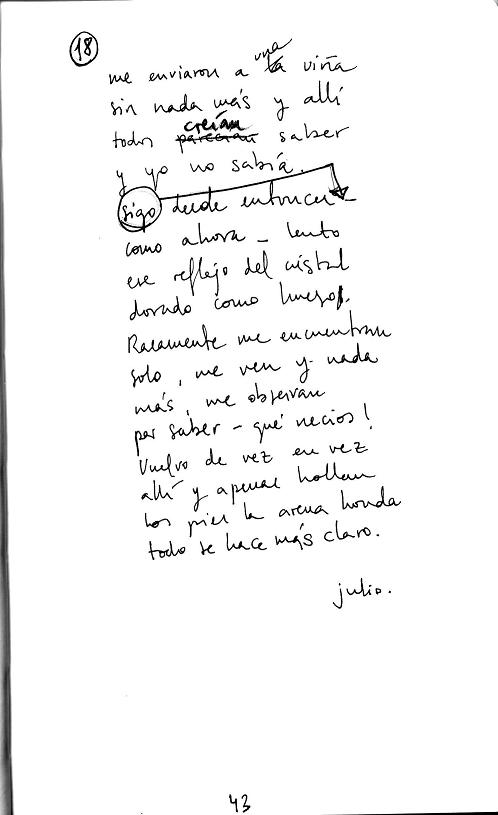 18
me enviaron a la una viña
sin nada más y allí
todos parecían creían saber
y yo no sabía.
sigo desde entonces –
como ahora – lento
ese reflejo del cristal
dorado como hueso.
Raramente me encuentran
solo, me ven y nada
más, me observan
por saber – qué necios!
Vuelvo de vez en vez
allí y apenas hollan
los pies la arena honda
todo se hace más claro.
julio.
43